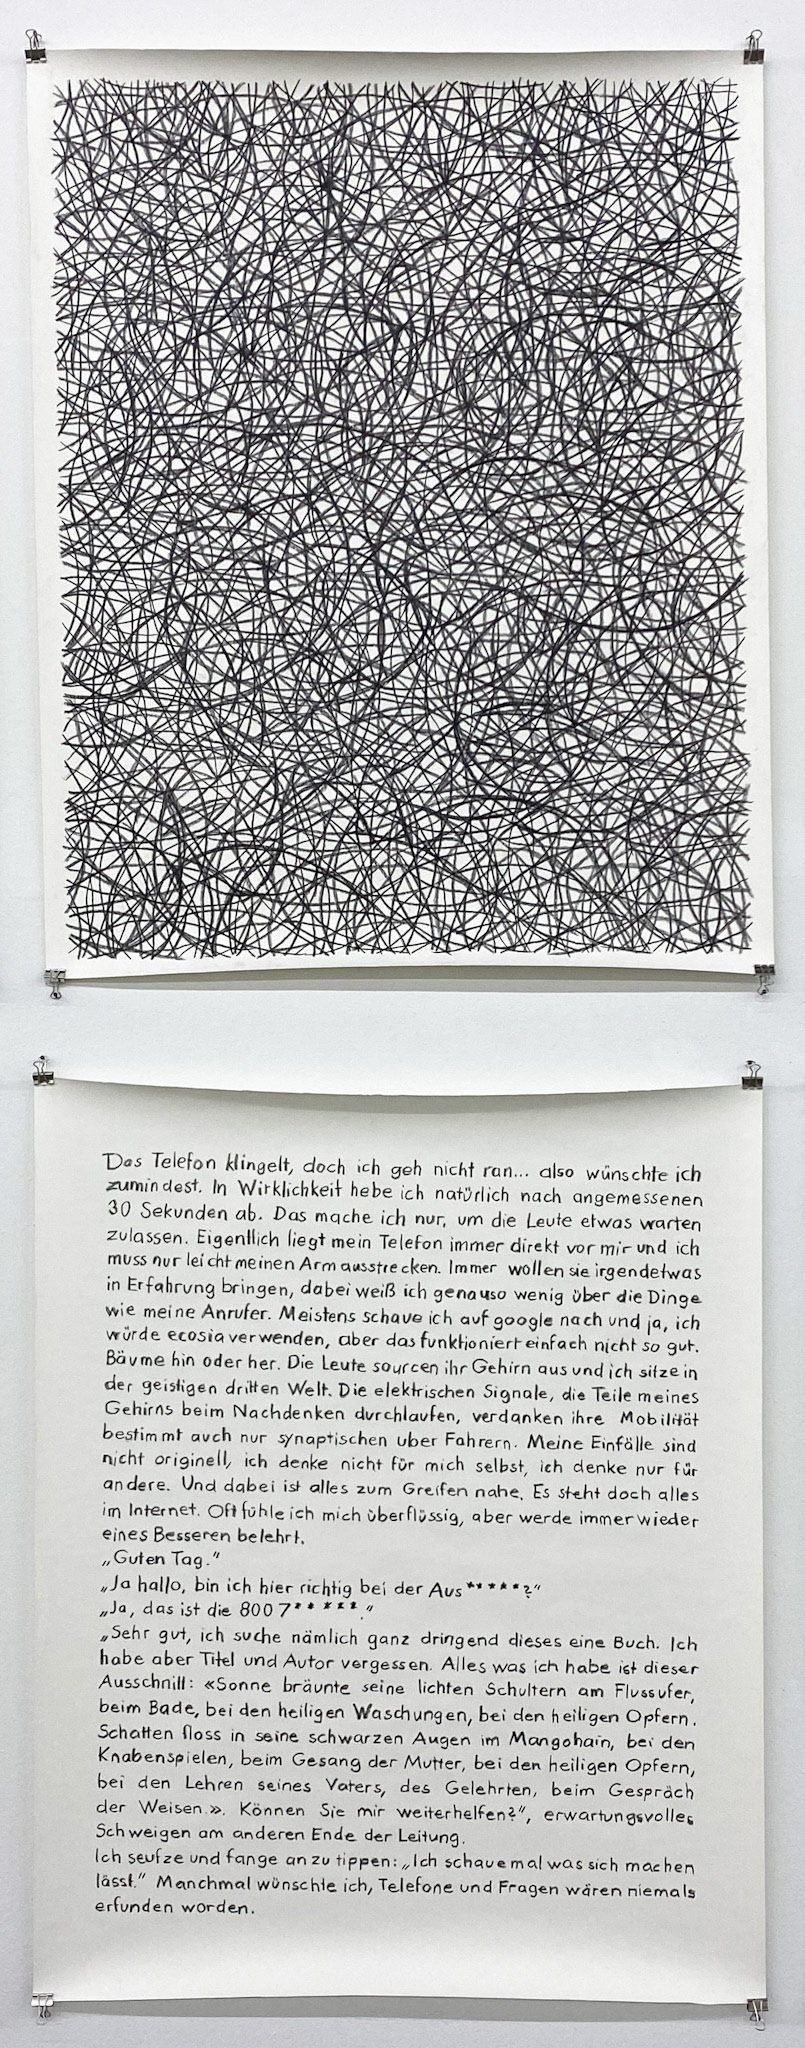 Das Telefon klingelt, doch ich geh nicht ran... also wünschte ich
zumindest. In Wirklichkeit hebe ich natürlich nach angemessenen
30 Sekunden ab. Das mache ich nur, um die Leute etwas warten
zulassen. Eigentlich liegt mein Telefon immer direkt vor mir und ich
muss nur leicht meinen Arm ausstrecken. Immer wollen sie irgendetwas
in Erfahrung bringen, dabei weiß ich genauso wenig über die Dinge
wie meine Anrufer. Meistens schaue ich auf google nach und ja, ich
würde ecosia verwenden, aber das funktioniert einfach nicht so gut.
Bäume hin oder her. Die Leute sourcen ihr Gehirn aus und ich sitze in
der geistigen dritten Welt. Die elektrischen Signale, die Teile meines
Gehirns beim Nachdenken durchlaufen, verdanken ihre Mobilität
bestimmt auch nur synaptischen uber Fahrern. Meine Einfälle sind
nicht originell, ich denke nicht für mich selbst, ich denke nur für
andere. Und dabei ist alles zum Greifen nahe. Es steht doch alles
im Internet. Oft fühle ich mich überflüssig, aber werde immer wieder
eines Besseren belehrt.
„Guten Tag."
„Ja hallo, bin ich hier richtig bei der Aus*****?"
„Ja, das ist die 8007*****."
„Sehr gut, ich suche nämlich ganz dringend dieses eine Buch. Ich
habe aber Titel und Autor vergessen. Alles was ich habe ist dieser
Ausschnitt: «Sonne bräunte seine lichten Schultern am Flussufer,
beim Bade, bei den heiligen Waschungen, bei den heiligen Opfern.
Schatten floss in seine schwarzen Augen im Mangohain, bei den
Knabenspielen, beim Gesang der Mutter, bei den heiligen Opfern,
bei den Lehren seines Vaters, des Gelehrten, beim Gespräch
der Weisen.». Können Sie mir weiterhelfen?", erwartungsvolles
Schweigen am anderen Ende der Leitung.
Ich seufze und fange an zu tippen: „Ich schaue mal was sich machen
lässt." Manchmal wünschte ich, Telefone und Fragen wären niemals
erfunden worden.